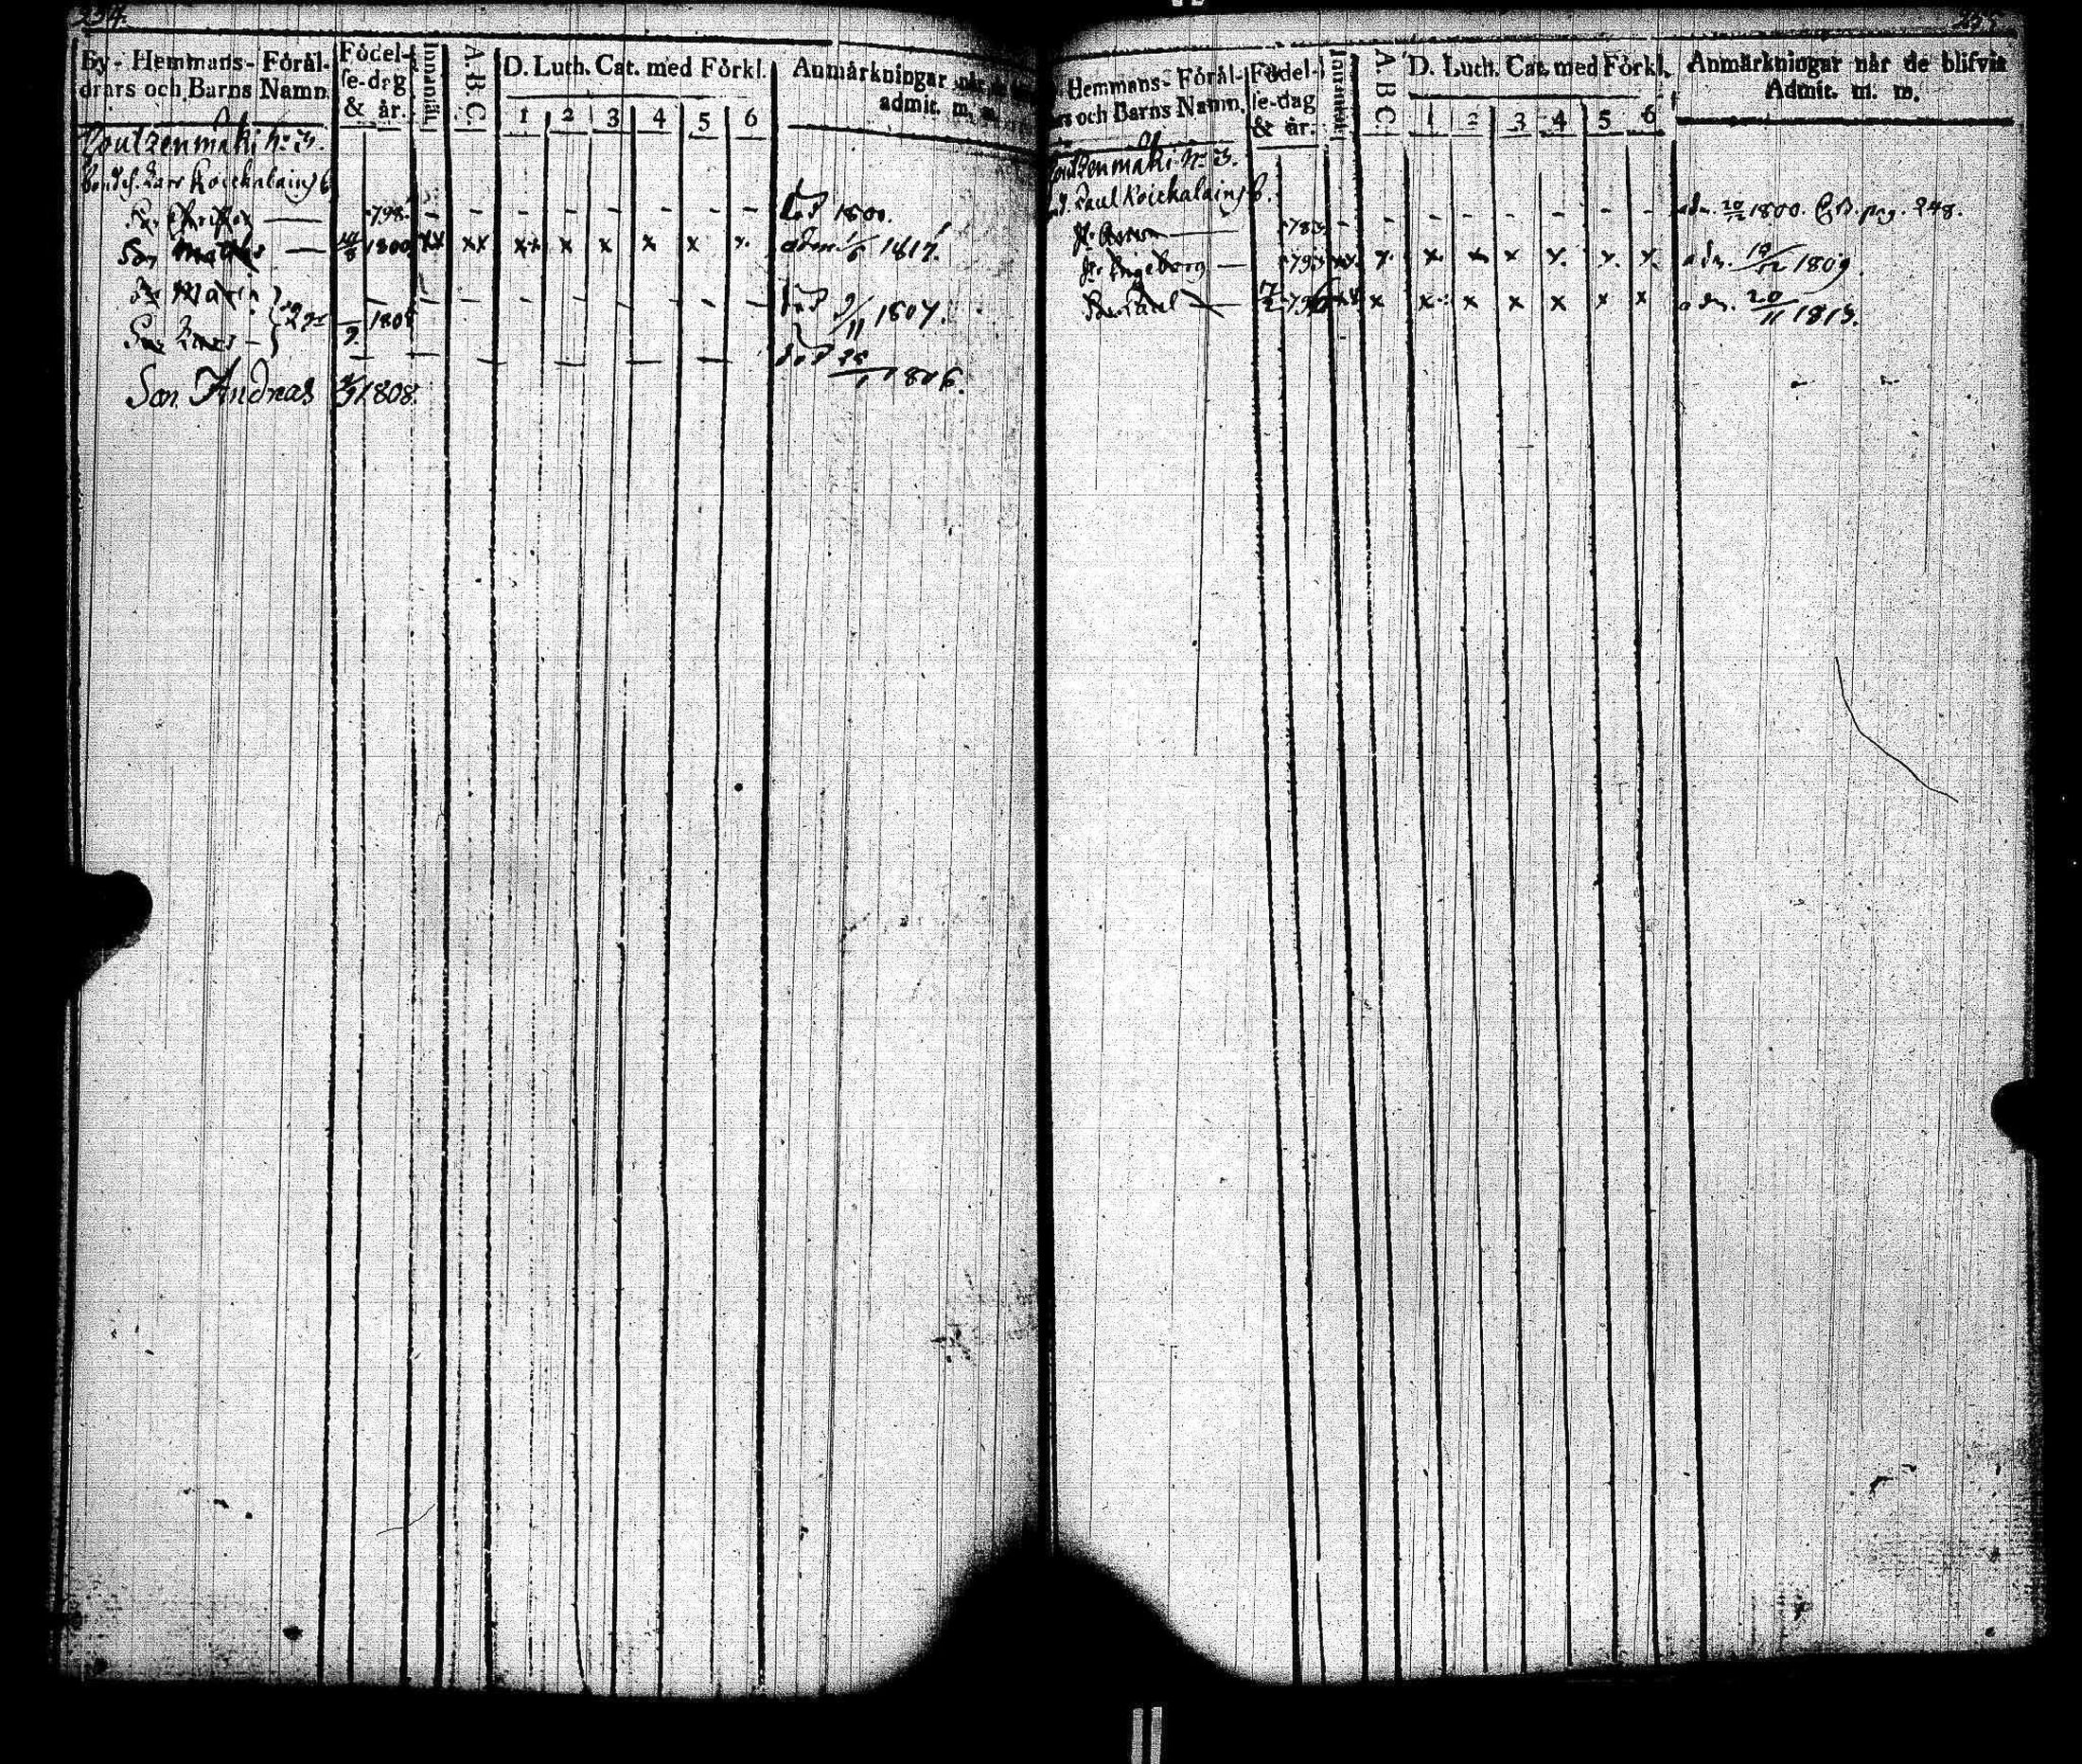 234.
By- Hemmans- Föräl-
drars och Barns Namn.
Födel-
se-dag
& år.
Innanläs.
A.B.C.
D. Luth. Cat. med Förkl.
1 2 3 4 5 6
Anmärkningar när de
admit. m. m.
Koutzenmäki N:o 3.
Lars Koickalainys b.
798. - - - - - - - - död 1800.
Son Matths 1800 xx xx xx x x x x x. adm. 1817.
Maria 2 180 - - - - - - - död 9/11 1807.
Lars - död 1806.
Son Andreas 1808.
235.
Hemmans- Föräl-
och Barns Namn.
Födel-
se-dag
& år.
Innanläs.
A.B.C.
D. Luth. Cat. med Förkl.
1 2 3 4 5 6
Anmärkningar når de blifvit
Admit. m. m.
Koutzenmäki N:o 3.
Paul Koickalainys b.
1783 - - - - - - adm. 20/12 1800. C.B. pag. 248.
Ingeborg 1793 xx x. x x x x. x. x. adm. 10/12 1809.
Son Paul 796 xx x x x x x x x adm. 20/11 1813.